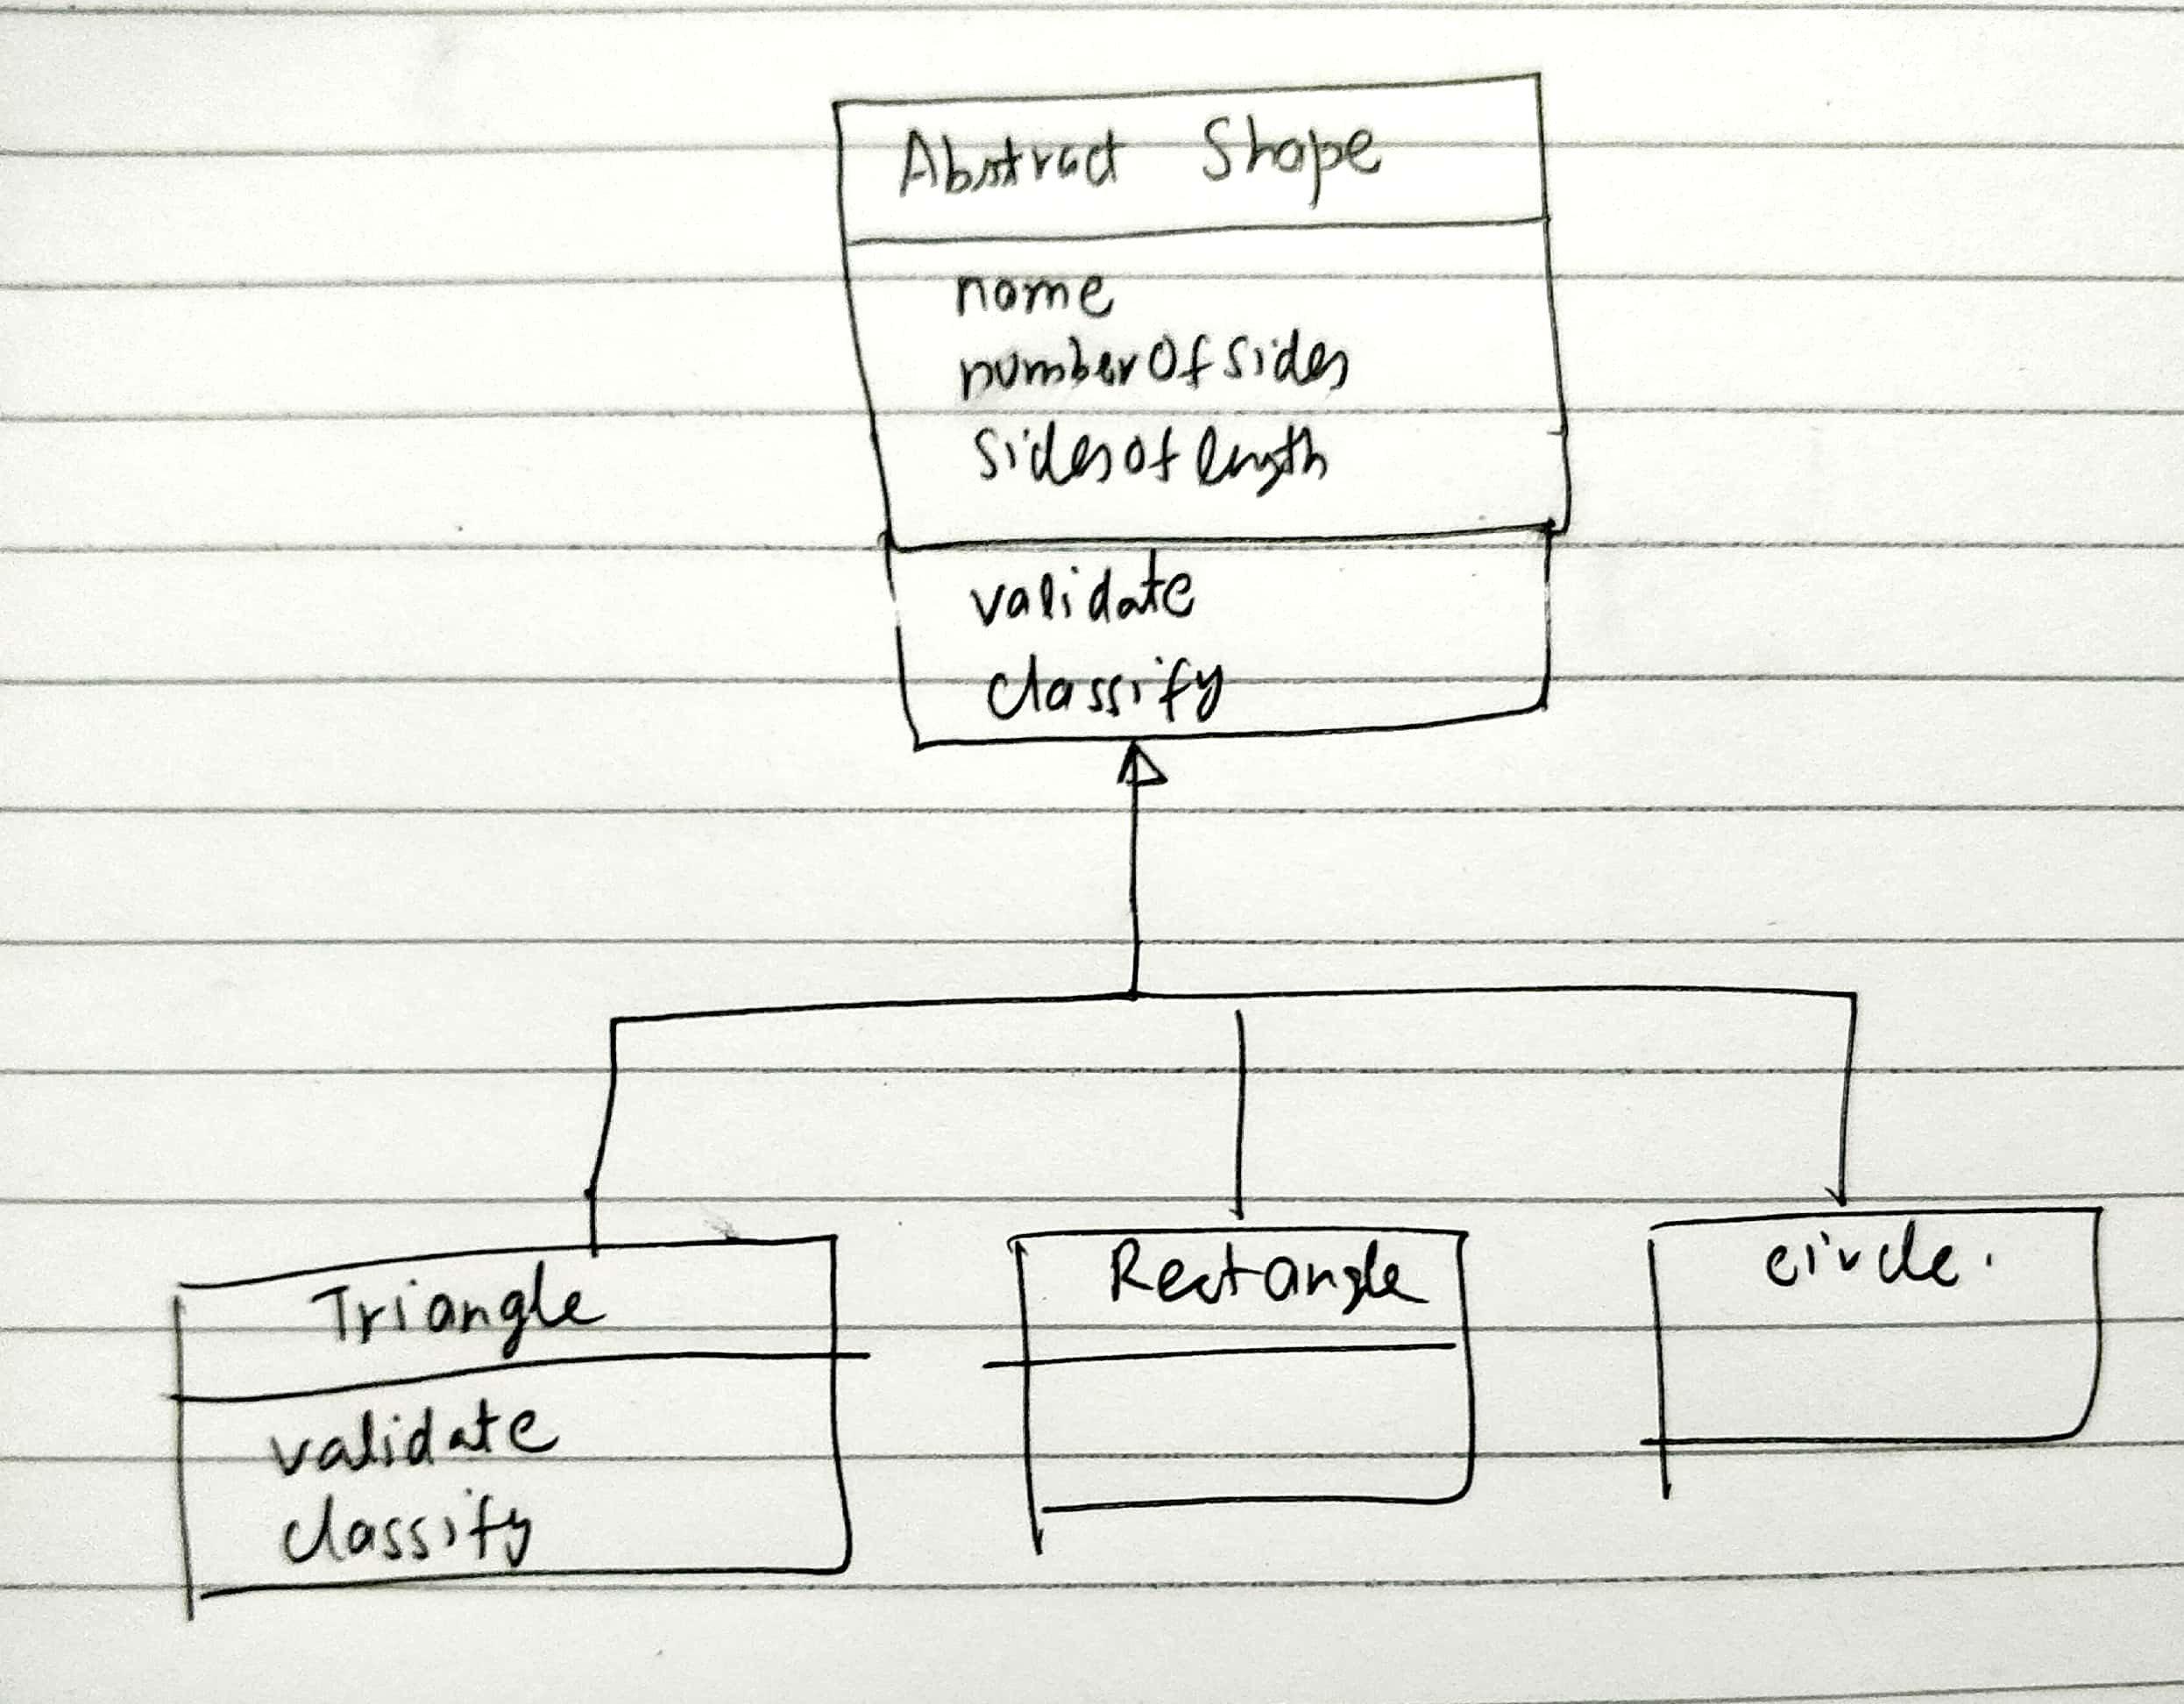 Abstract Shape
name
numberOfsides
sidesoflength
validate
classify
Triangle
validate
classify
Rectangle
circle.